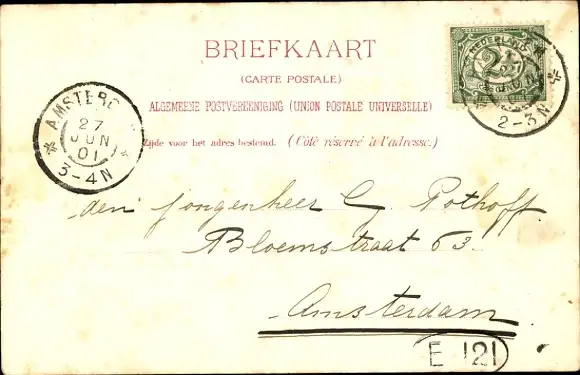 BRIEFKAART
(CARTE POSTALE)
ALGEMEENE POSTVEREENIGING (UNION POSTALE UNIVERSELLE)
Zijde voor het adres bestemd. (Côté réservé à l'adresse.)
NEDERLAND
2½
2-3N
AMSTERD
27
JUN
01
3-4N
den jongenheer G Pothoff
Bloemstraat 63.
Amsterdam
E 121